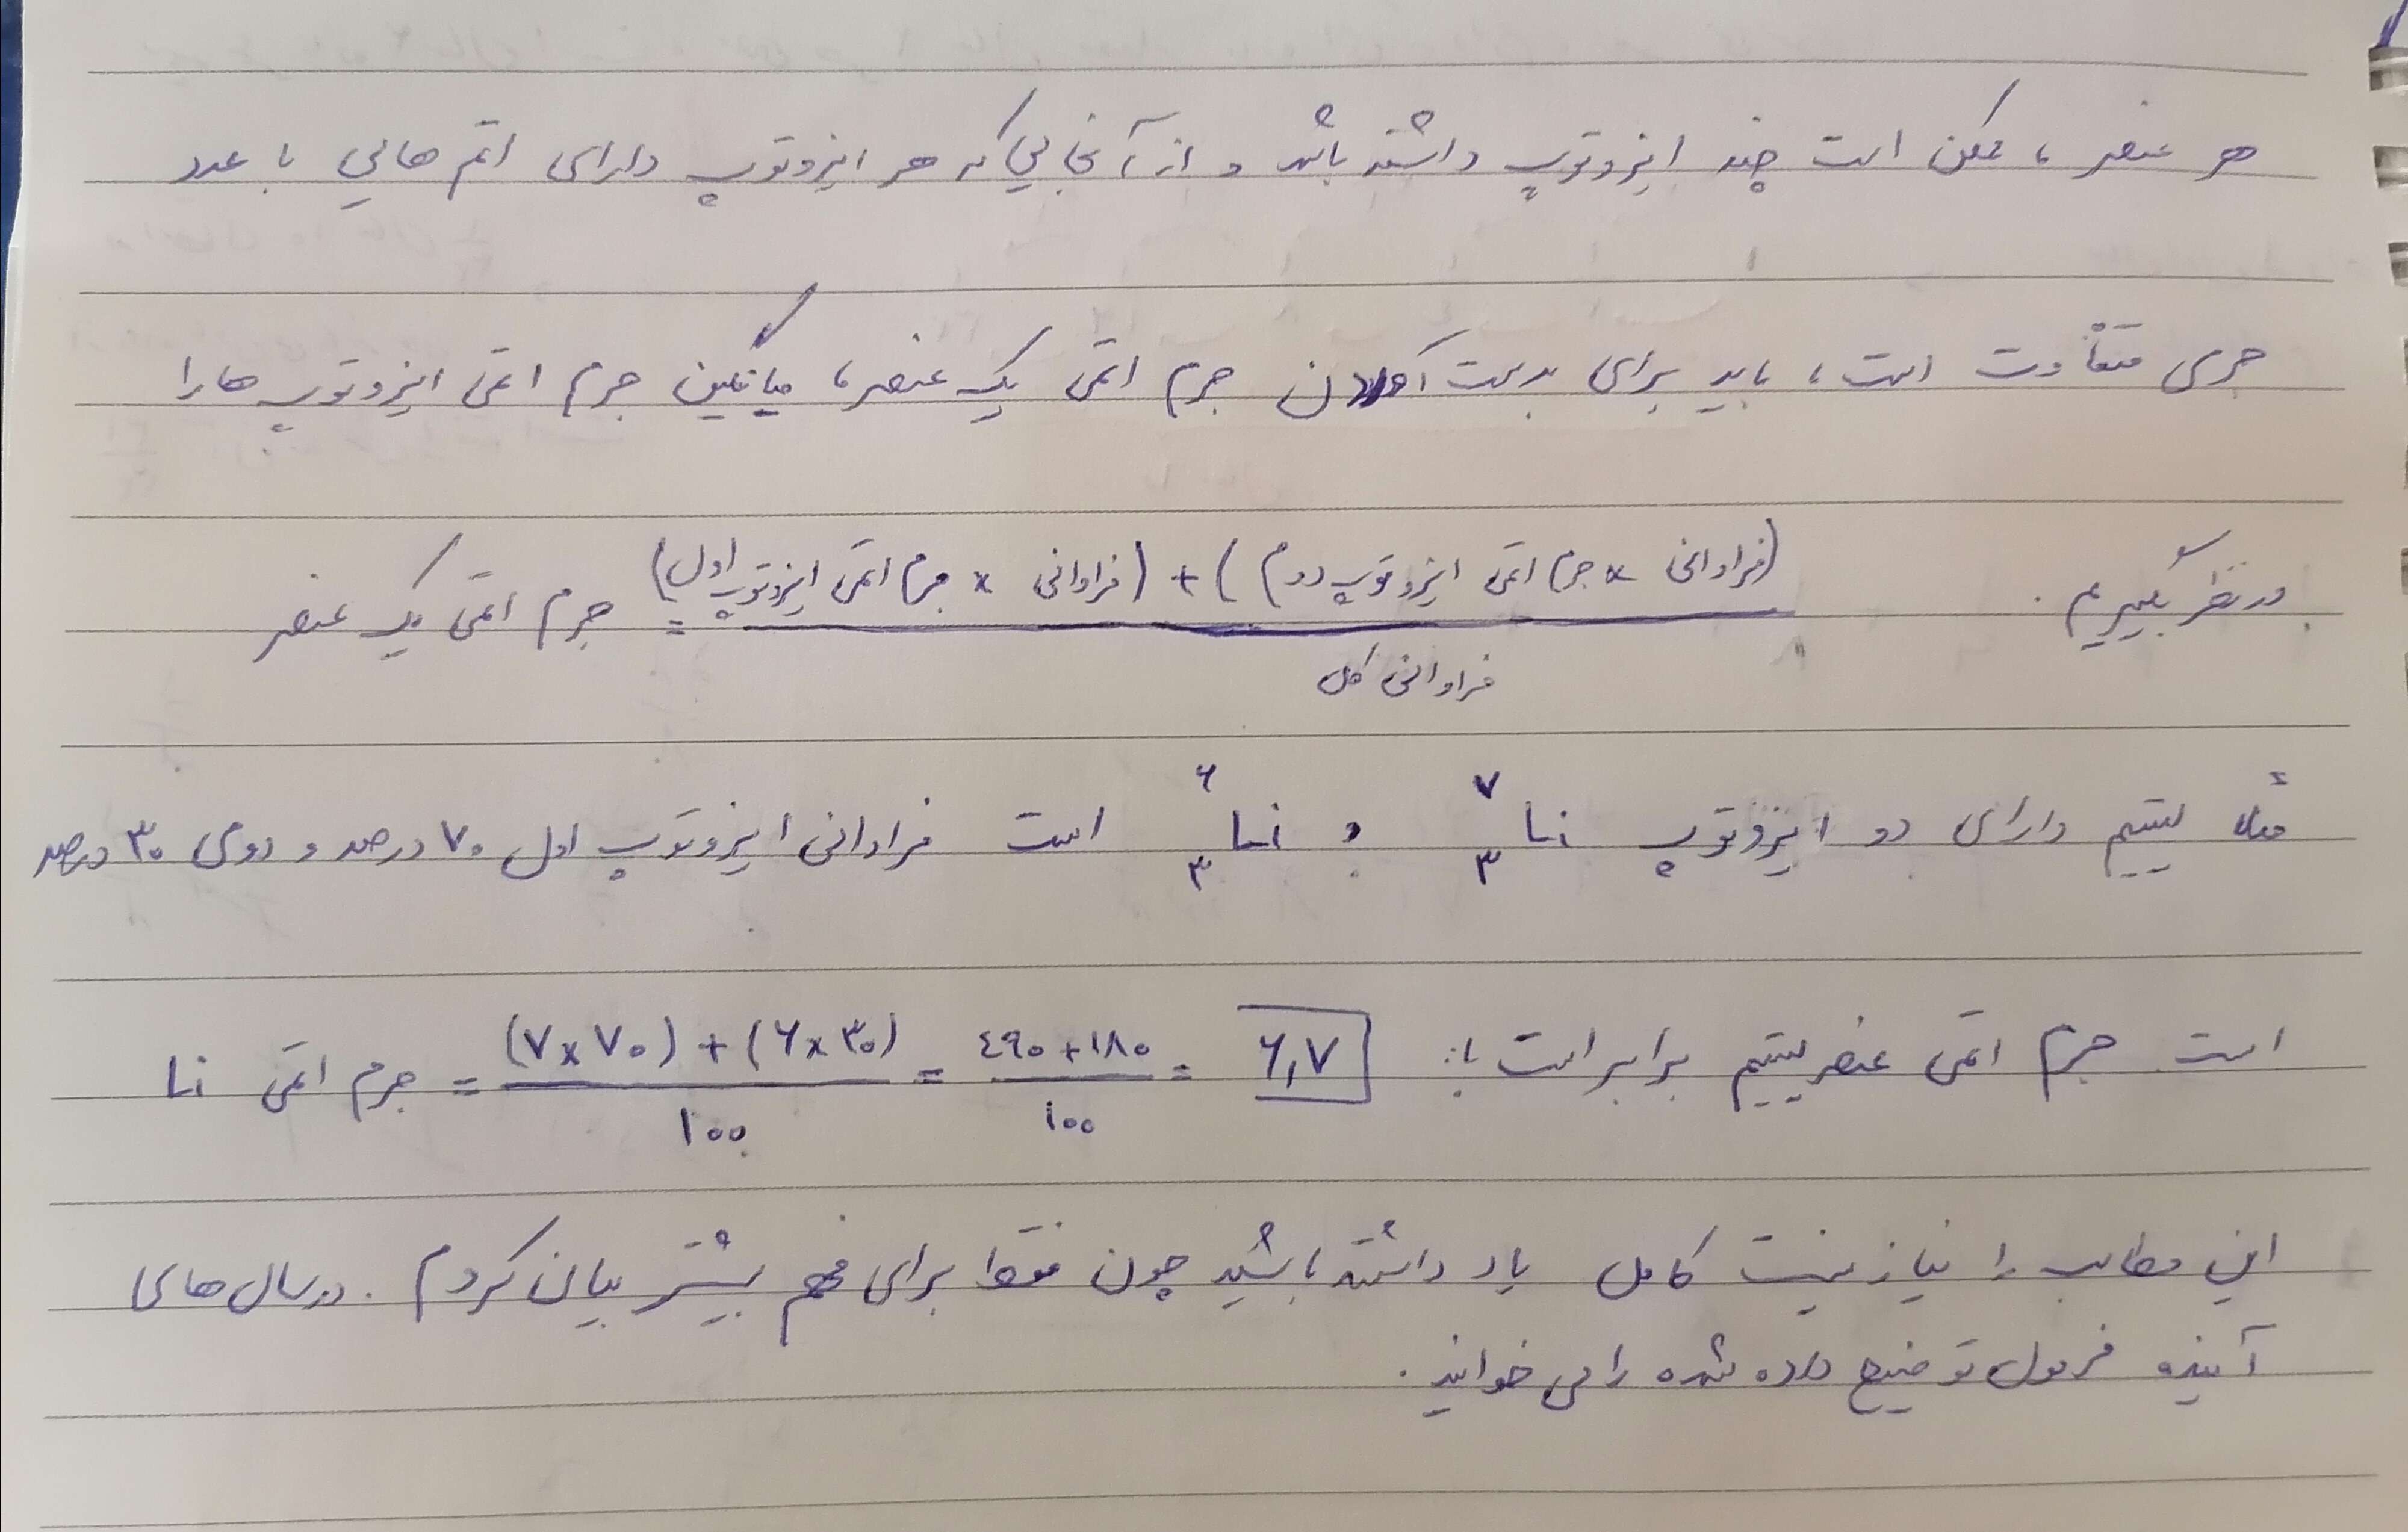 هر عنصر، ممکن است چند ایزوتوپ داشته باشد و از آنجایی که هر ایزوتوپ دارای اتم هایی با عدد
جرمی متفاوت است، باید برای بدست آوردن جرم اتمی یک عنصر، میانگین جرم اتمی ایزوتوپ ها را
در نظر بگیریم. جرم اتمی یک عنصر = (فراوانی × جرم اتمی ایزوتوپ اول) + (فراوانی × جرم اتمی ایزوتوپ دوم)
فراوانی کل
مثلا لیتیم دارای دو ایزوتوپ ⁷₃Li و ⁶₃Li است فراوانی ایزوتوپ اول ۷۰ درصد و دومی ۳۰ درصد
است. جرم اتمی عنصر لیتیم برابر است با: جرم اتمی Li = (۷×۷۰) + (۶×۳۰) / ۱۰۰ = ۴۹۰+۱۸۰ / ۱۰۰ = ۶,۷
این مطالب را نیاز نیست کامل یاد داشته باشید چون فقط برای فهم بیشتر بیان کردم. در سال های
آینده فرمول توضیح داده شده را می خوانید.